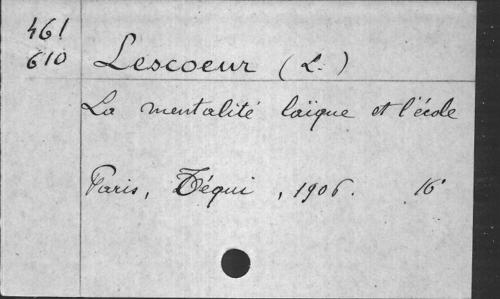 461
610 Lescoeur (L.)
La mentalité laïque et l'école
Paris, Téqui, 1906. 16°